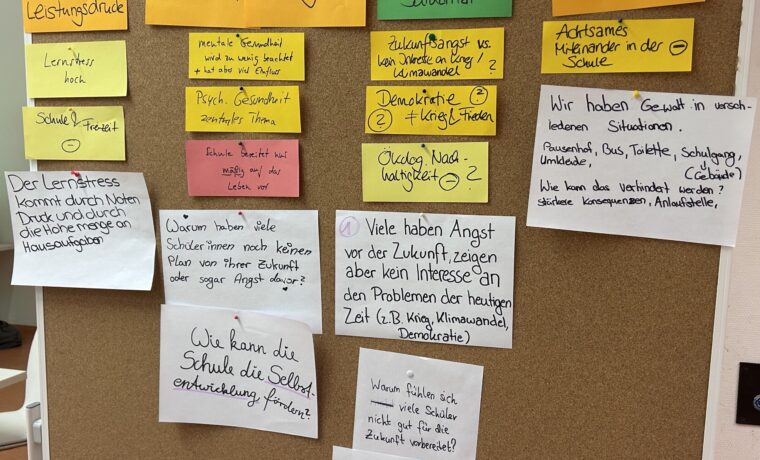 Leistungsdruck
Lernstress
hoch
Schule & Freizeit
Der Lernstress
kommt durch Noten
Druck und durch
die Hohe menge an
Hausaufgaben
mentale Gesundheit
wird zu wenig beachtet
+ hat aber viel Einfluss
Psych. Gesundheit
zentrales Thema
Schule bereitet nur
mäßig auf das
Leben vor
Warum haben viele
Schüler innen noch keinen
Plan von ihrer Zukunft
oder sogar Angst davor?
Wie kann die
Schule die Selbst-
entwicklung fördern?
Zukunftsangst vs.
kein Interesse an Krieg /
Klimawandel ?
Demokratie ?
? ≠ Krieg & Frieden
Ökolog. Nach-
haltigkeit - ?
1 Viele haben Angst
vor der Zukunft, zeigen
aber kein Interesse an
den Problemen der heutigen
Zeit (z.B. Krieg, Klimawandel,
Demokratie)
Warum fühlen sich
viele Schüler
nicht gut für die
Zukunft vorbereitet?
Achtsames
Miteinander in der
Schule
Wir haben Gewalt in versch-
iedenen Situationen.
Pausenhof, Bus, Toilette, Schulgang,
Umkleide, (Gebäude)
Wie kann das verhindert werden?
stärkere Konsequenzen, Anlaufstelle,